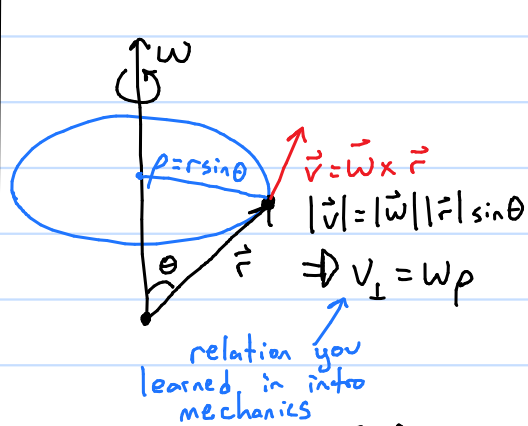 ω
ρ = r sinθ
v⃗ = ω⃗ × r⃗
|v⃗| = |ω⃗| |r⃗| sinθ
θ
r⃗
⇒ v⊥ = ωρ
relation you
learned in intro
mechanics